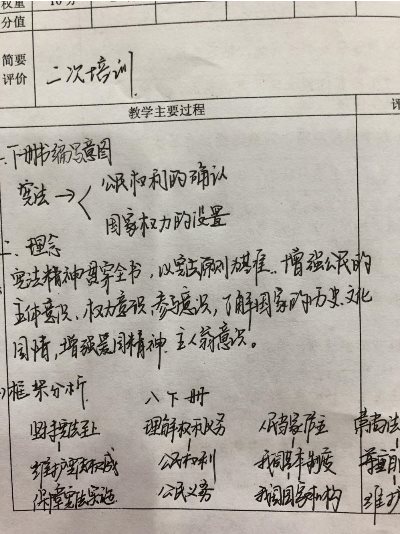 权重 10分
分值
简要 二次培训
评价
教学主要过程 评
一.下册书编写意图
宪法→< 公民权利的确认
国家权力的设置
二、理念
宪法精神贯穿全书,以宪法原则为基准.增强公民的
主体意识、权力意识、参与意识,了解国家的历史文化
国情,增强爱国精神.主人翁意识。
框架分析. 八下册
坚持宪法至上 理解权利义务 人民当家作主 崇尚法
维护宪法权威 公民权利 我国基本制度 尊重自
保障宪法实施 公民义务 我国国家机构 维护